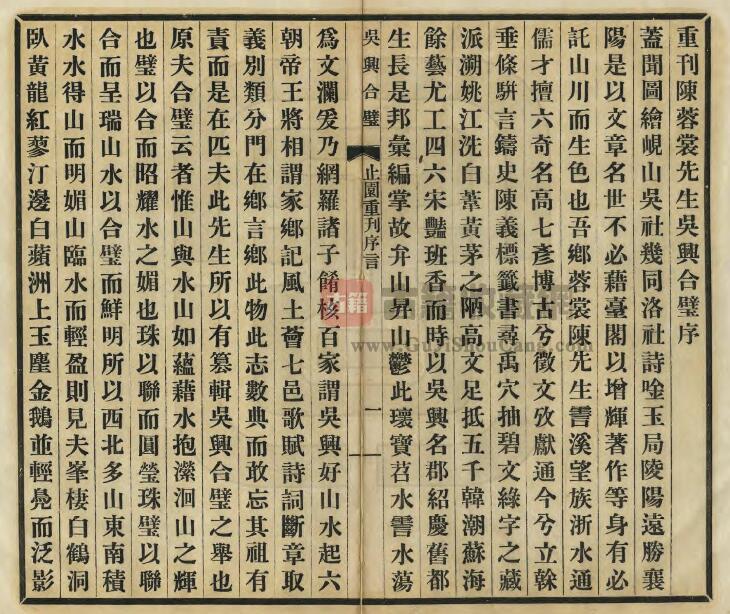 重刊陳蓉裳先生吳興合璧序
蓋聞圖繪峴山吳社幾同洛社詩唫玉局陵陽遠勝襄
陽是以文章名世不必藉臺閣以增輝著作等身有必
託山川而生色也吾鄉蓉裳陳先生霅溪望族浙水通
儒才擅六奇名高七彥博古兮徵文攷獻通今兮立榦
垂條騈言鑄史陳義標籤書尋禹穴抽碧文綠字之藏
派溯姚江洗白葦黃茅之陋高文足抵五千韓潮蘇海
餘藝尤工四六宋豔班香而時以吳興名郡紹慶舊都
生長是邦彙編掌故弁山昇山鬱此瓌寶苕水霅水蕩
吳興合璧
止園重刊序言
一
爲文瀾爰乃網羅諸子餚核百家謂吳興好山水起六
朝帝王將相謂家鄉記風土薈七邑歌賦詩詞斷章取
義別類分門在鄉言鄉此物此志數典而敢忘其祖有
責而是在匹夫此先生所以有纂輯吳興合璧之舉也
原夫合璧云者惟山與水山如蘊藉水抱瀠洄山之輝
也璧以合而昭耀水之媚也珠以聯而圓瑩珠璧以聯
合而呈瑞山水以合璧而鮮明所以西北多山東南積
水水得山而明媚山臨水而輕盈則見夫峯棲白鶴洞
臥黃龍紅蓼汀邊白蘋洲上玉塵金鵝並輕鳧而泛影
古籍
www.GuJiShouCang.com